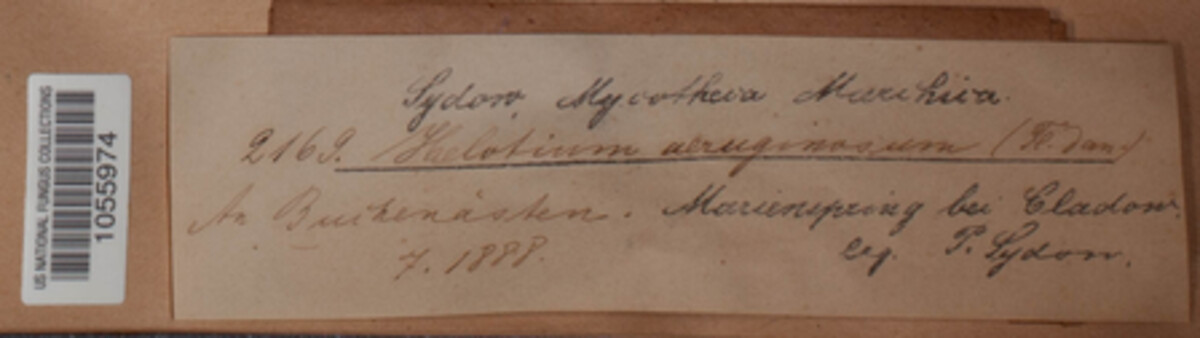 US NATIONAL FUNGUS COLLECTIONS
1055974
Sydow, Mycotheca Marchica.
2169. Helotium aeruginosum (Fl. Dan.)
An Buchenästen. Marienspring bei Cladow.
7. 1888. leg. P. Sydow.